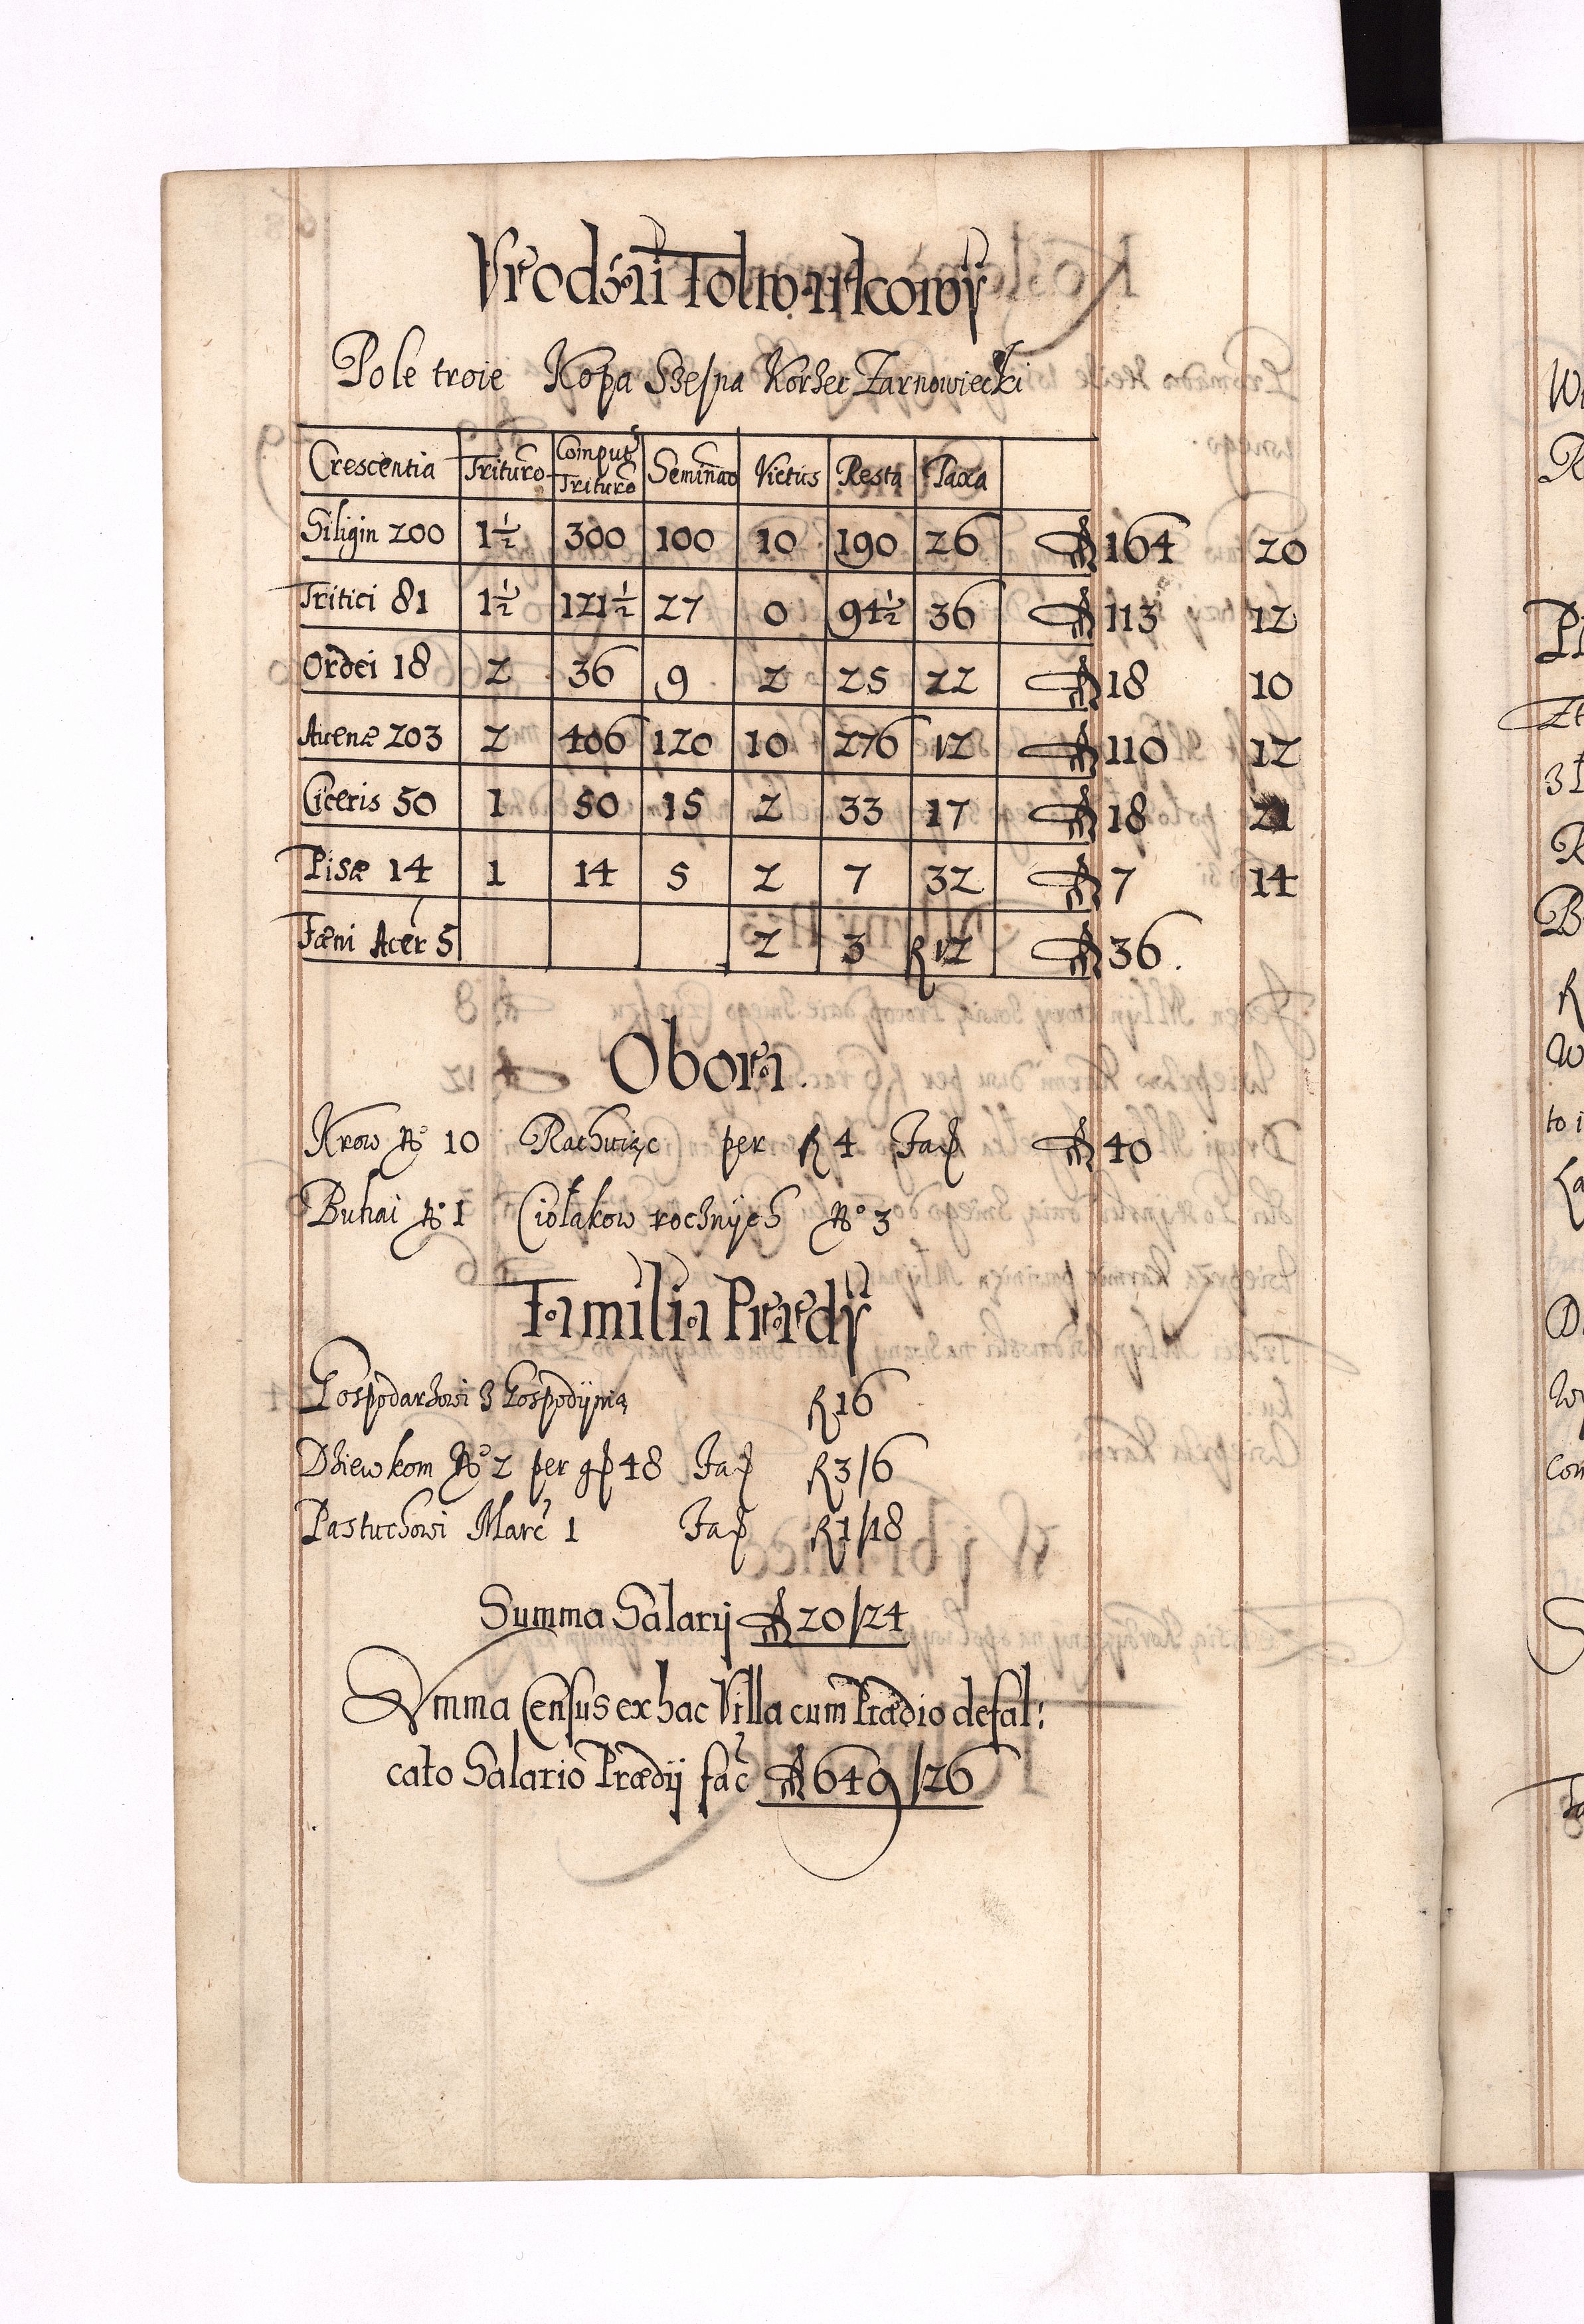 Vrodzai Folwarkowÿ
Pole troie Kopa Szesna Korzec Zarnowiecki
Crescentia Trituro Comput Trituro Seminão Victus Resta Taxa
Siligin 200 1½ 300 100 10 190 26 fl 164 20
Tritici 81 1½ 121½ 27 0 94½ 36 fl 113 12
Ordei 18 2 36 9 2 25 22 fl 18 10
Auenæ 203 2 406 120 10 276 12 fl 110 12
Ciceris 50 1 50 15 2 33 17 fl 18 21
Pisæ 14 1 14 5 2 7 32 fl 7 14
Fœni Acer 5 2 3 fl 12 fl 36.
Obora.
Krow No 10 Rachuiąc per fl 4 Fac fl 40
Buhai No 1 Ciołakow rocznÿch No 3
Familia Prædÿ
Gospodarzowi z Gospodÿnią fl 16
Dziewkom No 2 per gr 48 Fac fl 3/6
Pastuchowi Marc 1 Fac fl 1/18
Summa Salarÿ fl 20/24
Summa Census ex hac Villa cum Prædio defal:
cato Salario Prædÿ fac fl 649/26